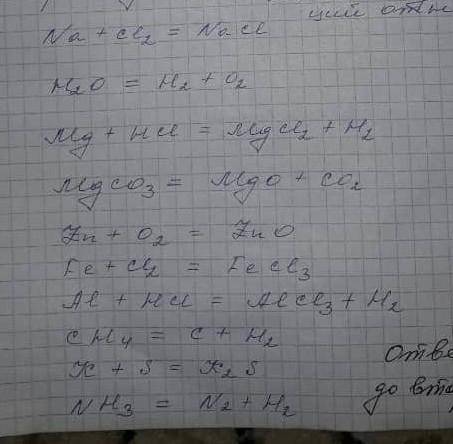 ций
Na + Cl₂ = NaCl
H₂O = H₂ + O₂
Mg + HCl = MgCl₂ + H₂
MgCO₃ = MgO + CO₂
Zn + O₂ = ZnO
Fe + Cl₂ = FeCl₃
Al + HCl = AlCl₃ + H₂
CH₄ = C + H₂
K + S = K₂S
NH₃ = N₂ + H₂
Отве
до вто